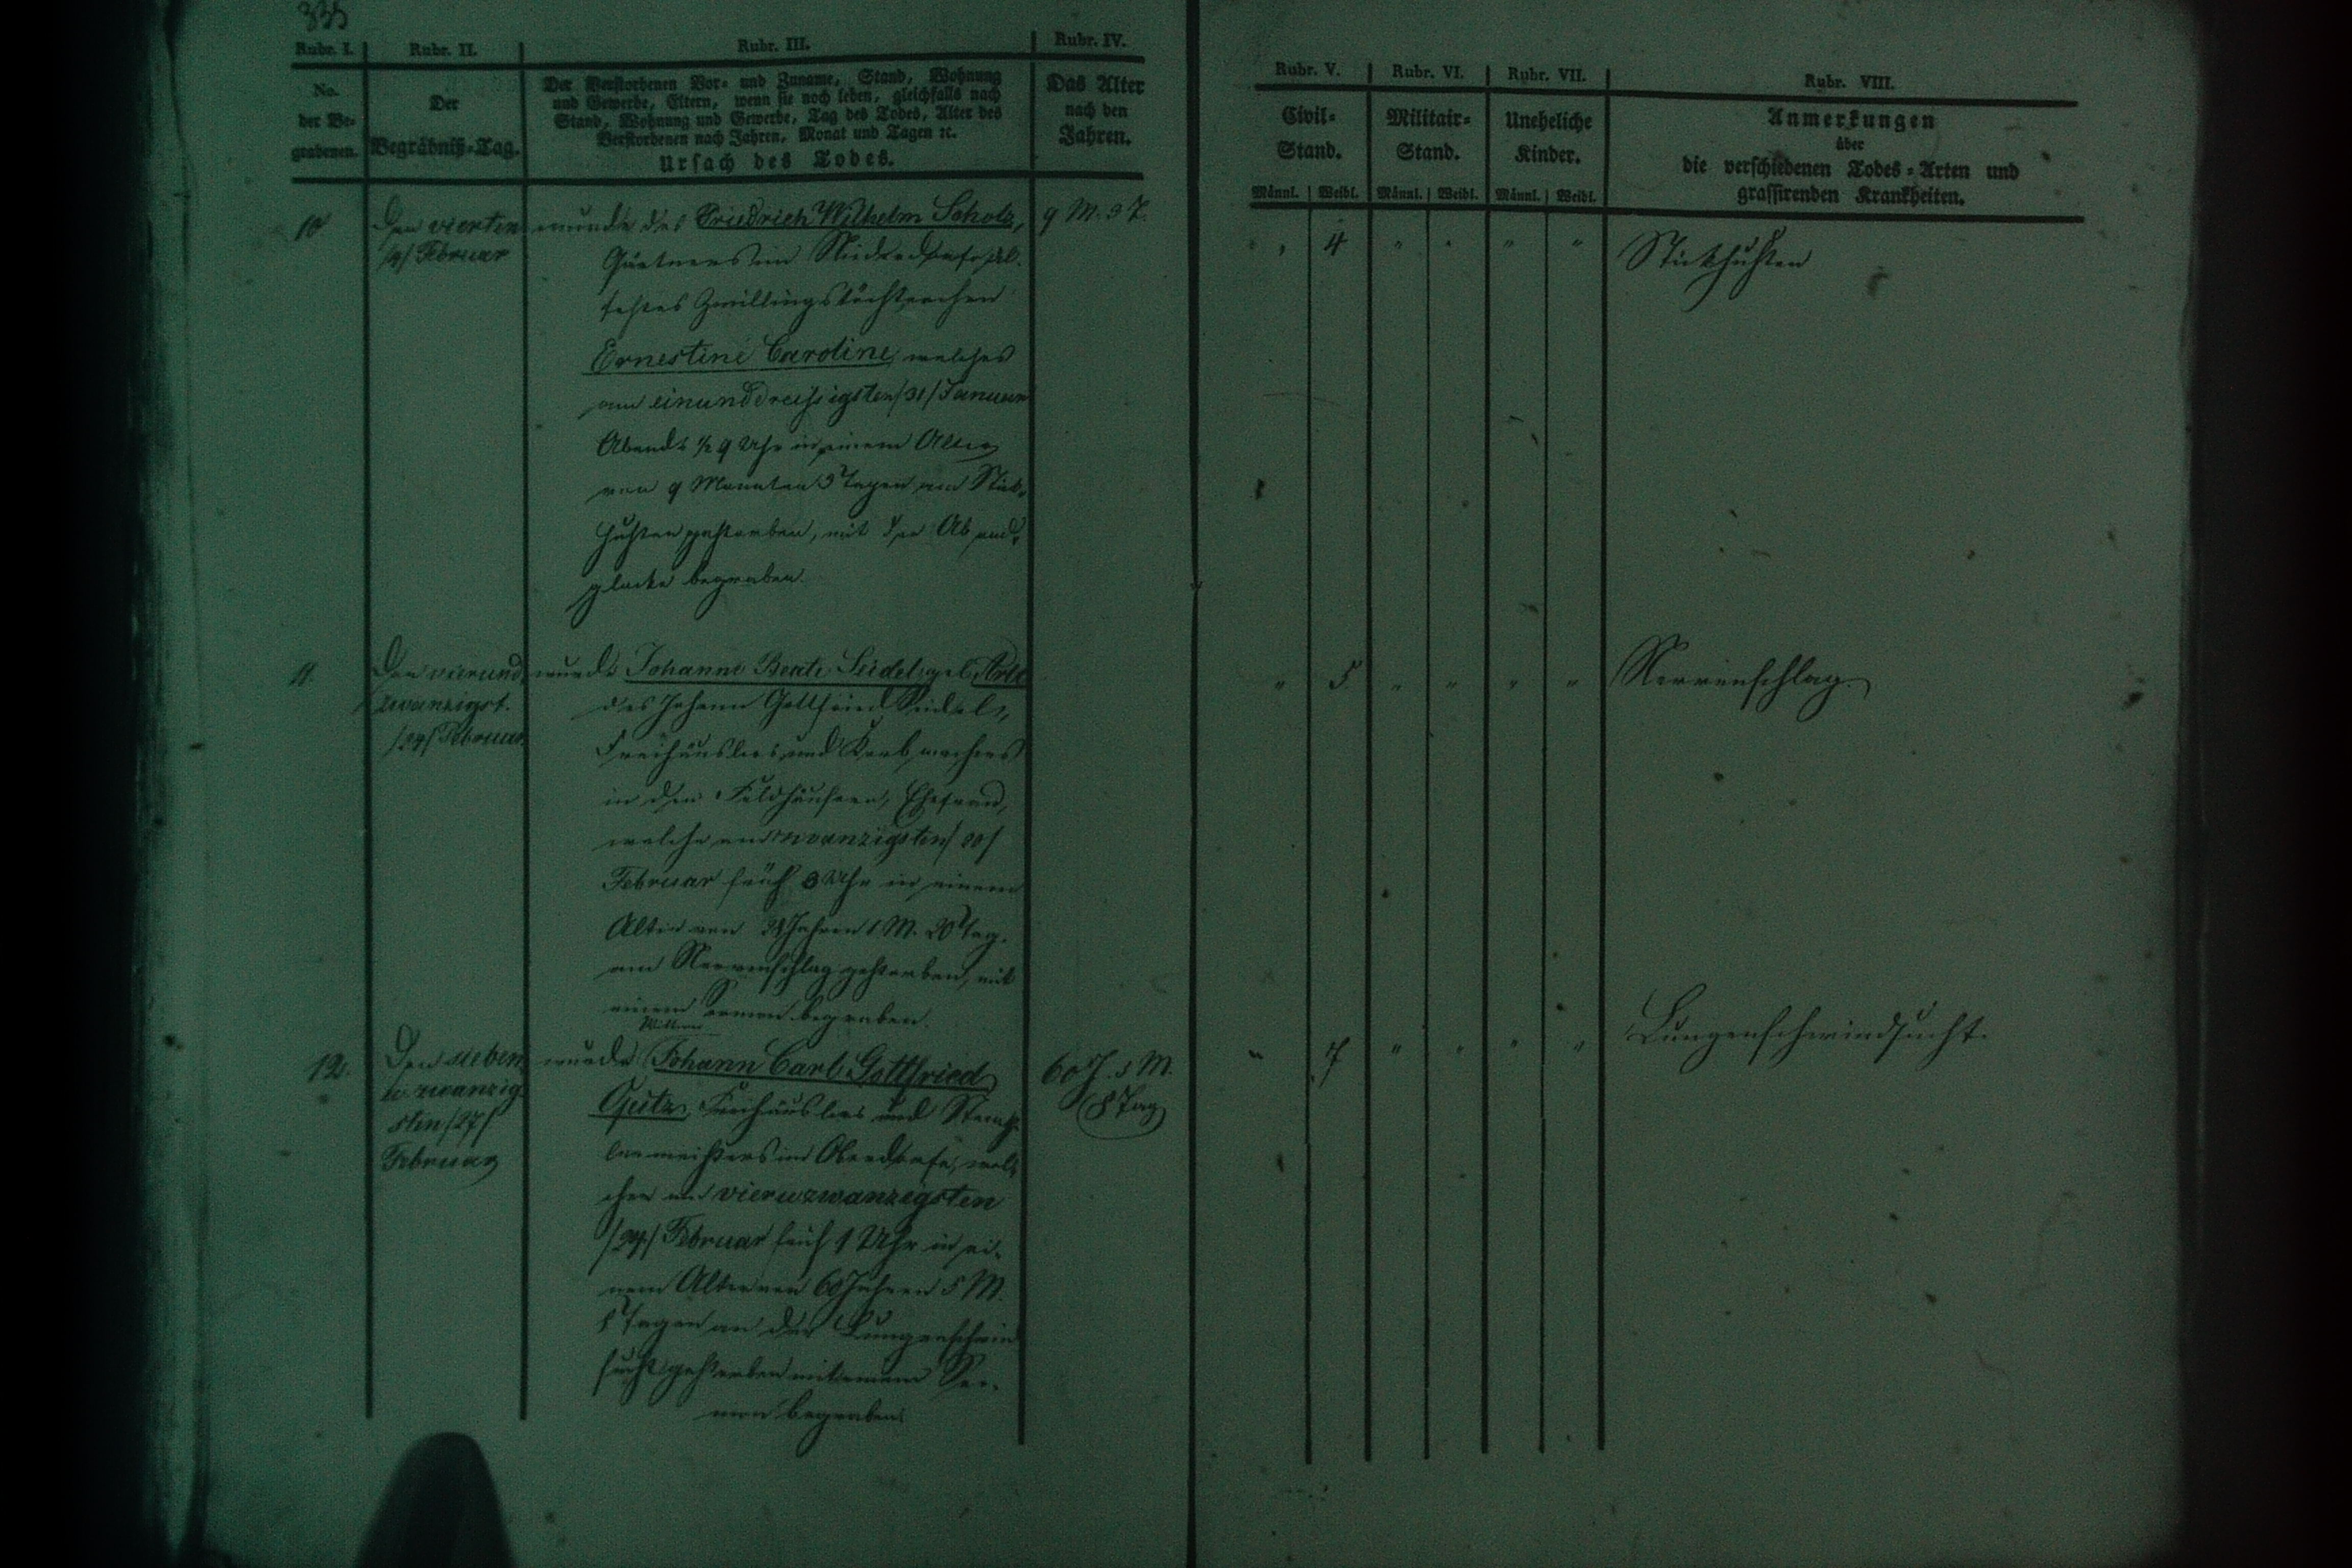 335
Rubr. I. Rubr. II. Rubr. III. Rubr. IV.
No. der Be- grabenen.
Der Begräbniß-Tag.
Der Verstorbenen Vor- und Zuname, Stand, Wohnung
und Gewerbe, Eltern, wenn sie noch leben, gleichfalls nach
Stand, Wohnung und Gewerbe, Tag des Todes, Alter des
Verstorbenen nach Jahren, Monat und Tagen ꝛc.
Ursach des Todes.
Das Alter
nach den
Jahren.
10
Den vierten
/4/ Februar
wurde des Friedrich Wilhelm Scholz,
Gärtners im Niederdorfe, äl-
testes Zwillingstöchterchen
Ernestine Caroline, welches
am einunddreißigsten /31/ Januar
Abends ½ 9 Uhr in einem Alter
von 9 Monaten 3 Tagen am Stick-
husten gestorben, mit der Abend-
glocke begraben.
9 M. 3 T.
11.
Den vierund
zwanzigst.
/24/ Februar
wurde Johanne Beate Seidel, geb.
des Johann Gottfried Seidels,
Freihäuslers und Korbmachers
in den Feldhäusern, Ehefrau,
welche am zwanzigsten /20/
Februar früh 3 Uhr in einem
Alter von Jahren 1 M. 20 Tag.
am Nervenschlag gestorben, mit
einem Sermon begraben.
12.
Den sieben
u. zwanzig
sten /27/
Februar
wurde Johann Carl Gottfried
Freihäuslers und
meisters im Oberdorfe, wel-
cher am vieruzwanzigsten
/24/ Februar früh 1 Uhr in ei-
nem Alter von 60 Jahren 5 M.
8 Tagen an der Lungenschwind
sucht gestorben mit einem Ser-
mon begraben.
60 J. 5 M.
8 Tag
Rubr. V. Rubr. VI. Rubr. VII. Rubr. VIII.
Civil-
Stand.
Militair-
Stand.
Uneheliche
Kinder.
Anmerkungen
über
die verschiedenen Todes-Arten und
grassirenden Krankheiten.
Männl. Weibl. Männl. Weibl. Männl. Weibl.
" 4 " " " " Stickhusten
" 5 " " " " Nervenschlag.
" " " " " Lungenschwindsucht.